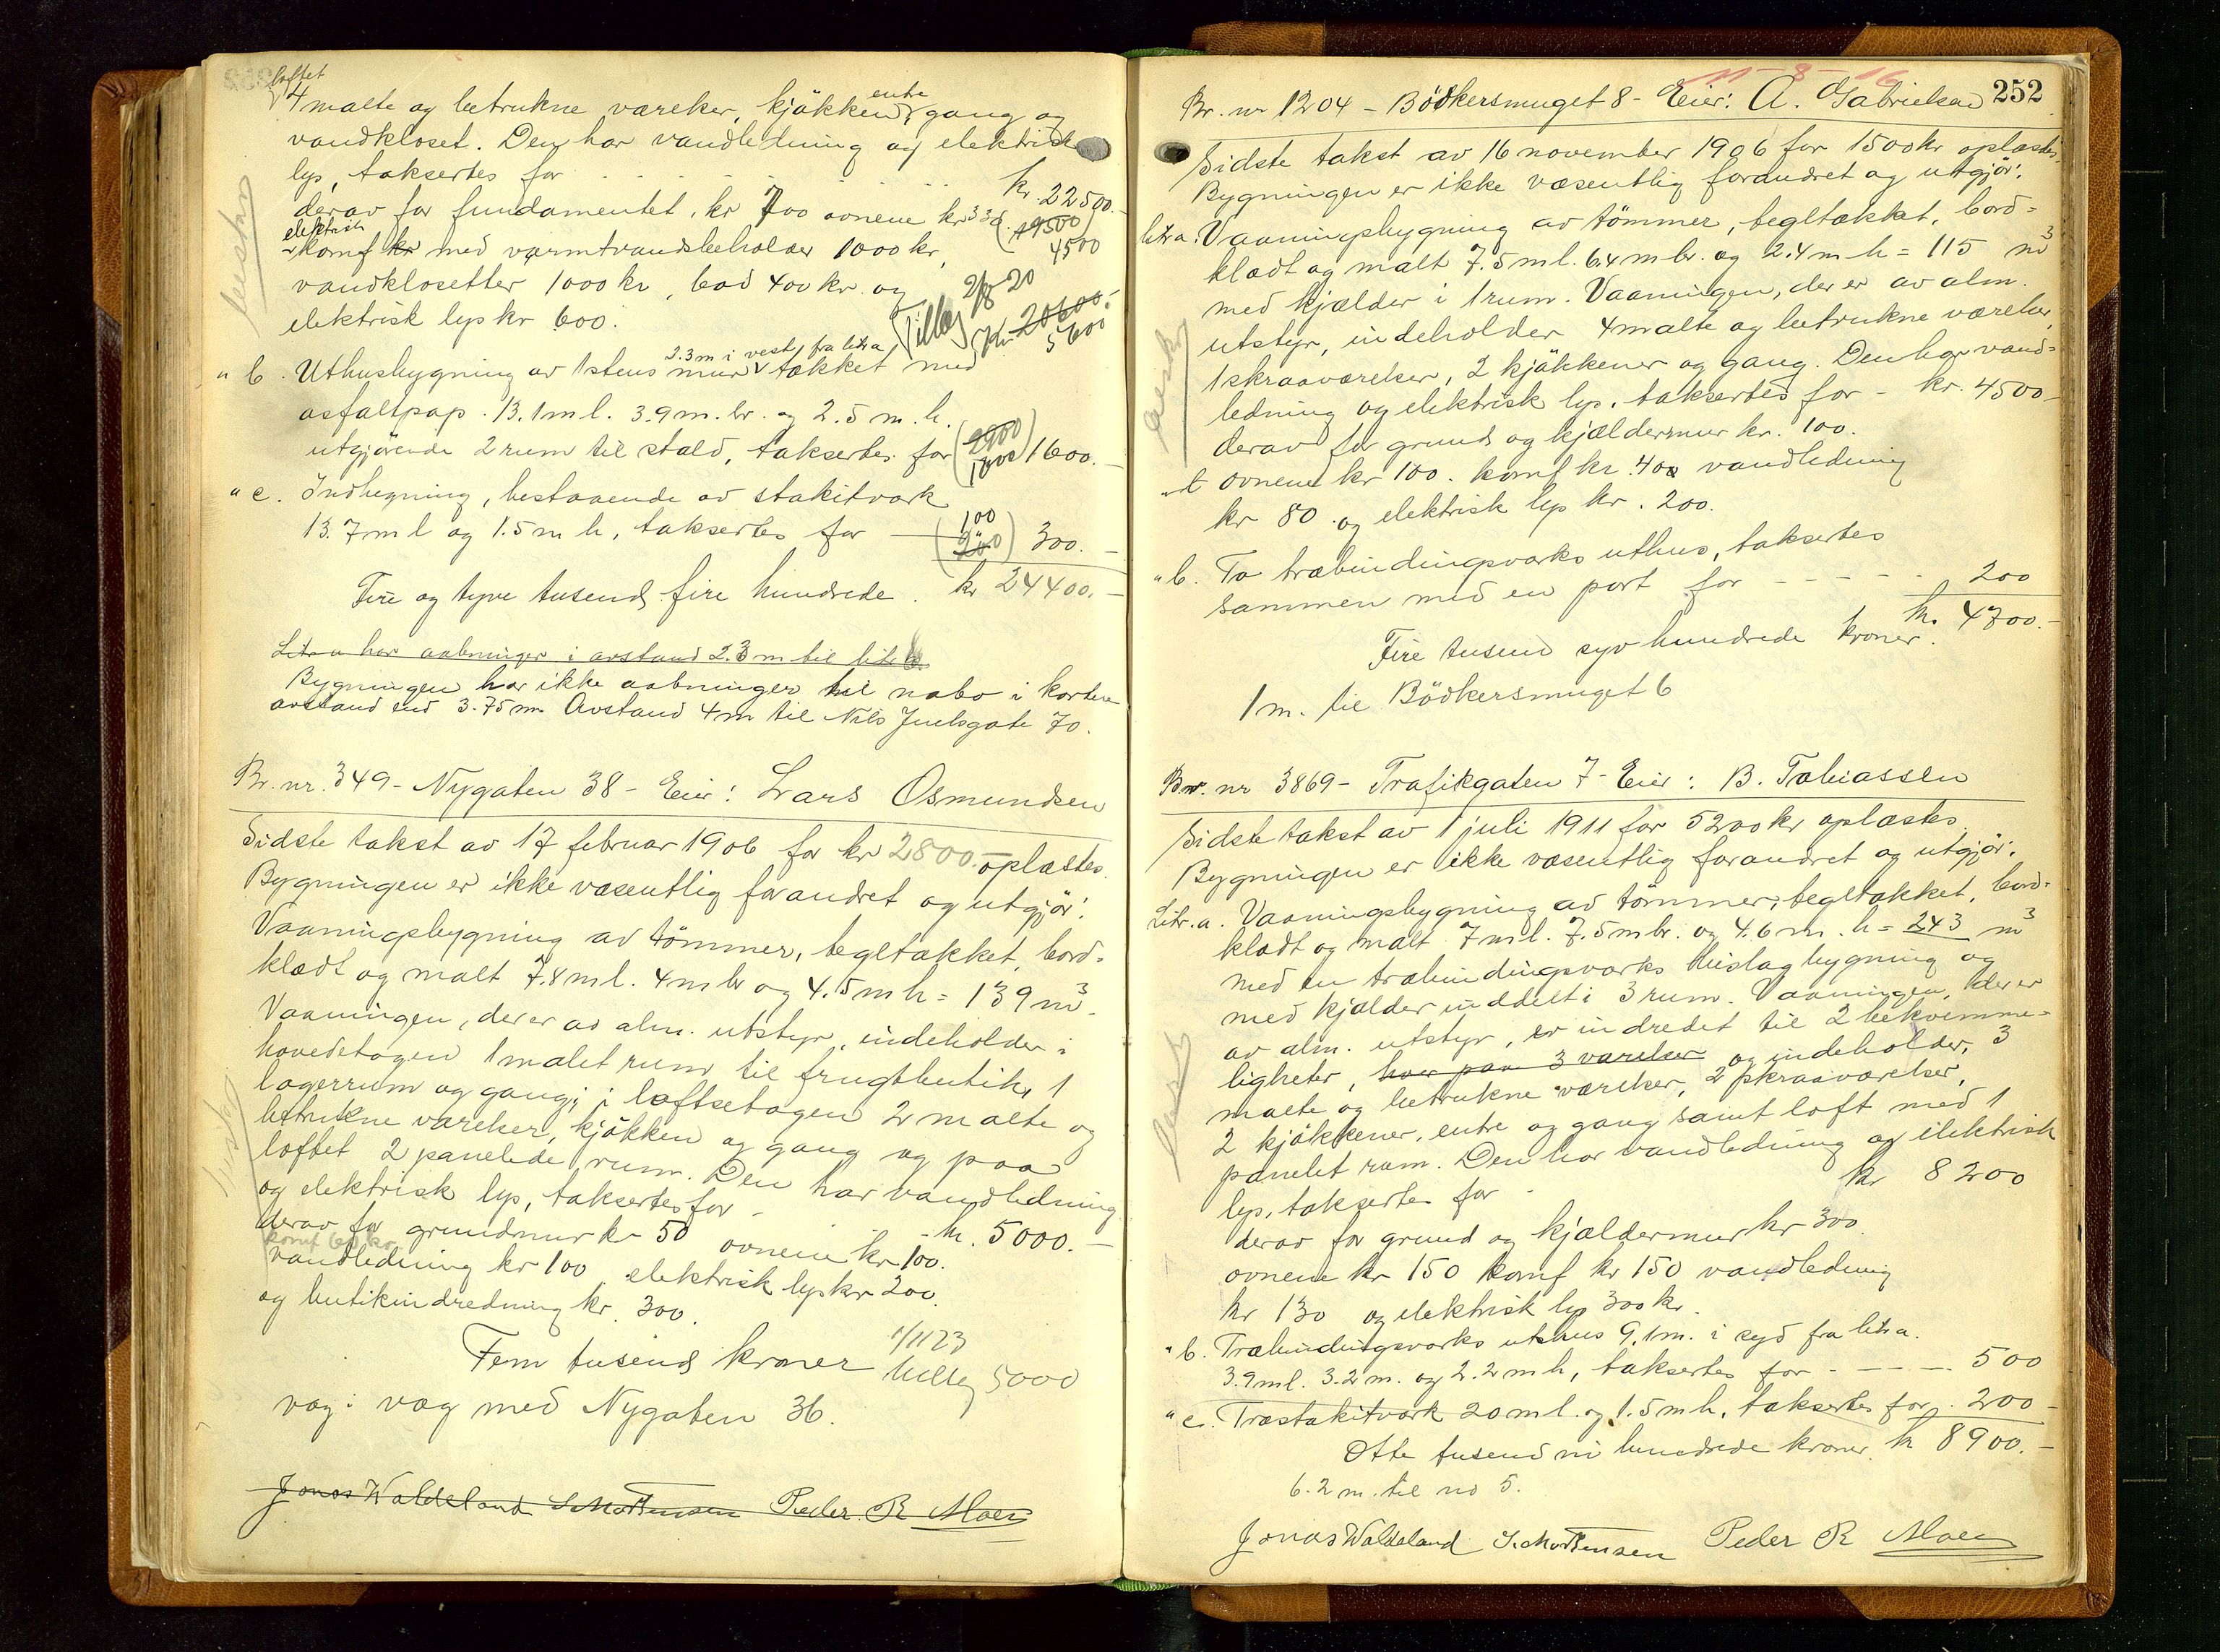 loftet
4 malte og betrukne værelser, kjøkken entre gang og
vandkloset. Den har vandledning og elektrisk
lys, taksertes for kr. 22500.-
derav for fundamentet kr 700 ovnene kr 330. (19500)
elektrisk
komf kr med varmtvandsbeholder 1000 kr, 4500
vandklosetter 1000 kr, bad 400 kr og
elektrisk lys kr 600.
Tillæg 2/8-20
Kr 20600.-
5600
2.3 m i vest fra litra
" b. Uthusbygning av 1 stens mur tækket med
asfaltpap. 13.1 m l. 3.9 m. br. og 2.5 m. h.
utgjørende 2 rum til stald, taksertes for 1600.-
" c. Indhegning, bestaaende av stakitværk
13.7 m l og 1.5 m h, taksertes for (100 200) 300.-
Fire og tyve tusend fire hundrede. kr 24400.-
Litr a har aabninger i avstand 2.3 m til litr b.
Bygningen har ikke aabninger til nabo i kortere
avstand end 3.75 m. Avstand 4 m til Nils Juelsgate 70.
Br. nr. 349 - Nygaten 38 - Eier: Lars Osmundsen
Sidste takst av 17 februar 1906 for kr 2800.- oplæstes.
Bygningen er ikke væsentlig forandret og utgjør:
Vaaningsbygning av tömmer, tegltækket, bord-
klædt og malt 7.8 m l. 4 m br og 4.5 m h = 139 m³.
Vaaningen, der er av alm. utstyr, indeholder i
hovedetagen 1 malet rum til frugtbutik, 1
lagerrum og gang; i loftsetagen 2 malte og
betrukne værelser, kjøkken og gang og paa
loftet 2 panelede rum. Den har vandledning
og elektrisk lys, taksertes for - kr. 5000.-
derav for grundmur kr 50 ovnene kr 100.
komf 60 kr
vandledning kr 100, elektrisk lys kr 200
og butikindredning kr. 300.
Fem tusend kroner
1/11 23
tillæg 5000
væg i væg med Nygaten 36.
Jonas Waldeland S. Mortensen Peder R Moen
11-8-16
252
Br. nr 1204 - Bödkersmuget 8 - Eier: A. Gabrielsen
Sidste takst av 16 november 1906 for 1500 kr oplæstes.
Bygningen er ikke væsentlig forandret og utgjör:
litr a. Vaaningsbygning av tömmer, tegltækket, bord-
klædt og malt 7.5 m l. 6.4 m br. og 2.4 m h = 115 m³
med kjælder i 1 rum. Vaaningen, der er av alm.
utstyr, indeholder 4 malte og betrukne værelser,
1 skraaværelser, 2 kjøkkener og gang. Den har vand-
ledning og elektrisk lys, taksertes for - kr. 4500-
derav for grund og kjældermur kr. 100.
ovnene kr 100. komf kr. 400 vandledning
kr 80 og elektrisk lys kr. 200.
" b. To træbindingsværks uthus, taksertes
sammen med en port for - - - - - 200
kr. 4700.-
Fire tusend syv hundrede kroner.
1 m. til Bödkersmuget 6
Br. nr 3869 - Trafikgaten 7 - Eier: B. Tobiassen
Sidste takst av 1 juli 1911 for 5200 kr oplæstes
Bygningen er ikke væsentlig forandret og utgjör:
Litr. a. Vaaningsbygning av tömmer, tegltækket, bord-
klædt og malt 7 m l. 7.5 m br. og 4.6 m. h = 243 m³
med en træbindingsværks bislagbygning og
med kjælder inddelt i 3 rum. Vaaningen, der er
av alm. utstyr, er indredet til 2 bekvemme-
ligheter, hver paa 3 værelser og indeholder, 3
malte og betrukne værelser, 2 skraaværelser,
2 kjøkkener, entre og gang samt loft med 1
panelet rum. Den har vandledning og elektrisk
lys, taksertes for - kr 8200
derav for grund og kjældermur kr 300.
ovnene kr 150 komf kr 150 vandledning
kr 130 og elektrisk lys 300 kr.
" b. Træbindingsværks uthus 9.1 m. i syd fra litr a.
3.9 m l. 3.2 m. og 2.2 m h, taksertes for - - - - 500
" c. Træstakitværk 20 m l. og 1.5 m h. taksertes for. 200-
Otte tusend ni hundrede kroner kr 8900.-
6.2 m. til no 5.
Jonas Waldeland S. Mortensen Peder R Moen